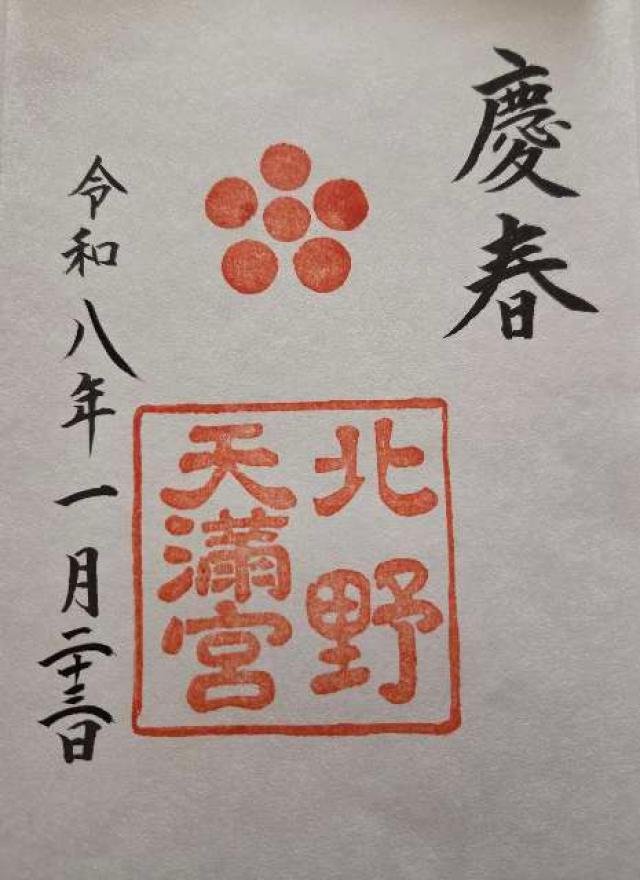 慶春
北野
天満宮
令和八年一月二十三日